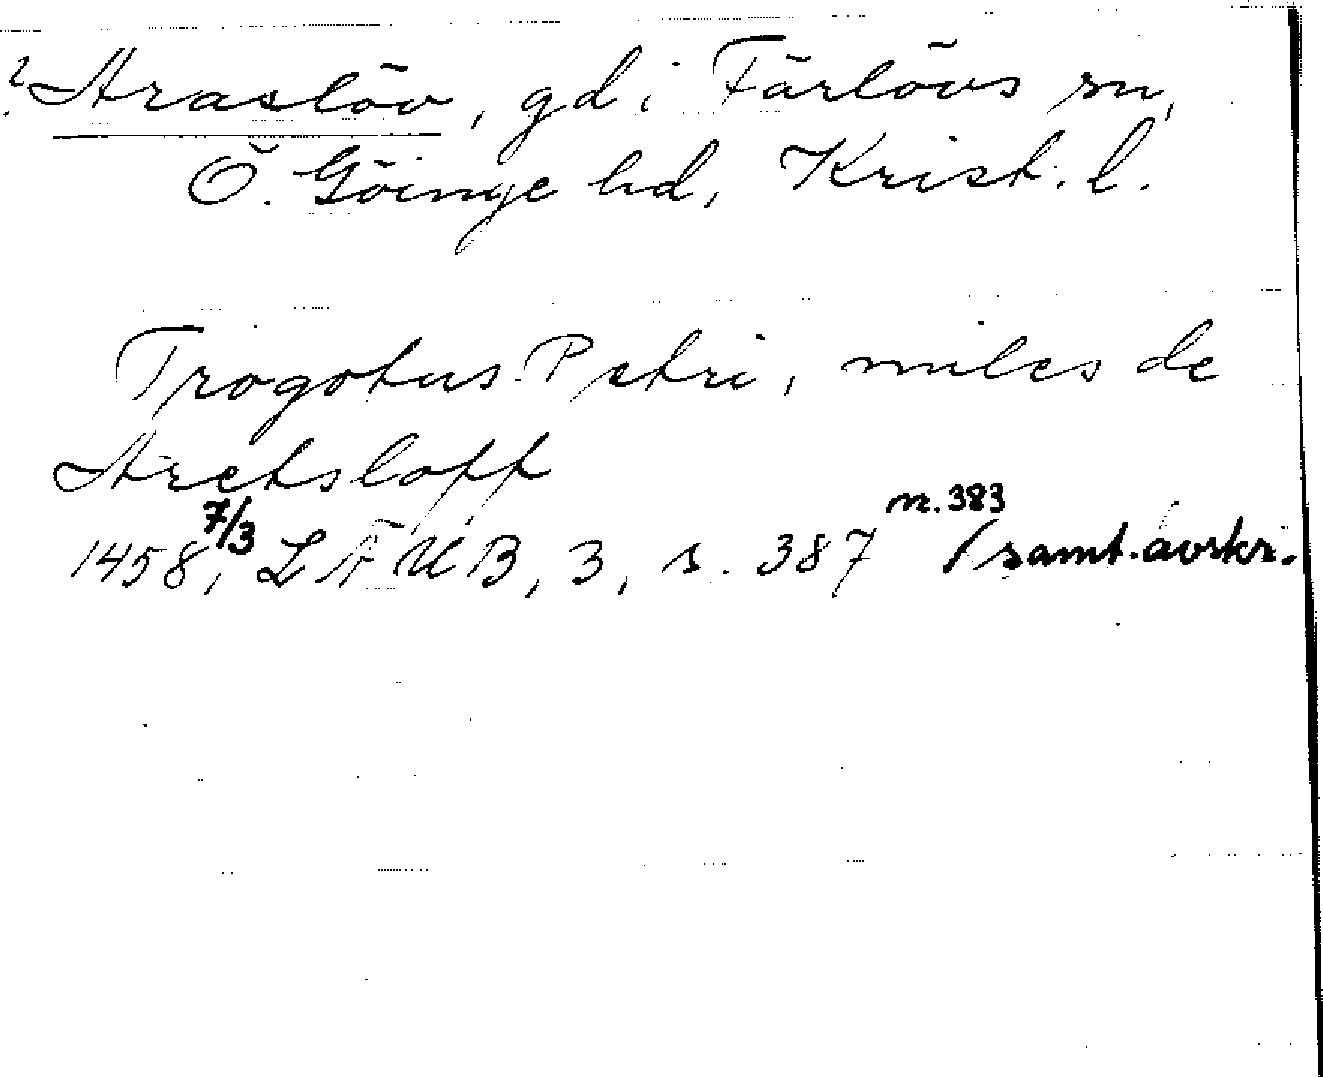 ? Araslöv, gd i Färlövs sn,
Ö. Göinge hd, Krist. l.
Trogotus Petri, miles de
Aretsloff
1458 7/3, LÄUB, 3, s. 387 nr. 383 (samt. avskr.